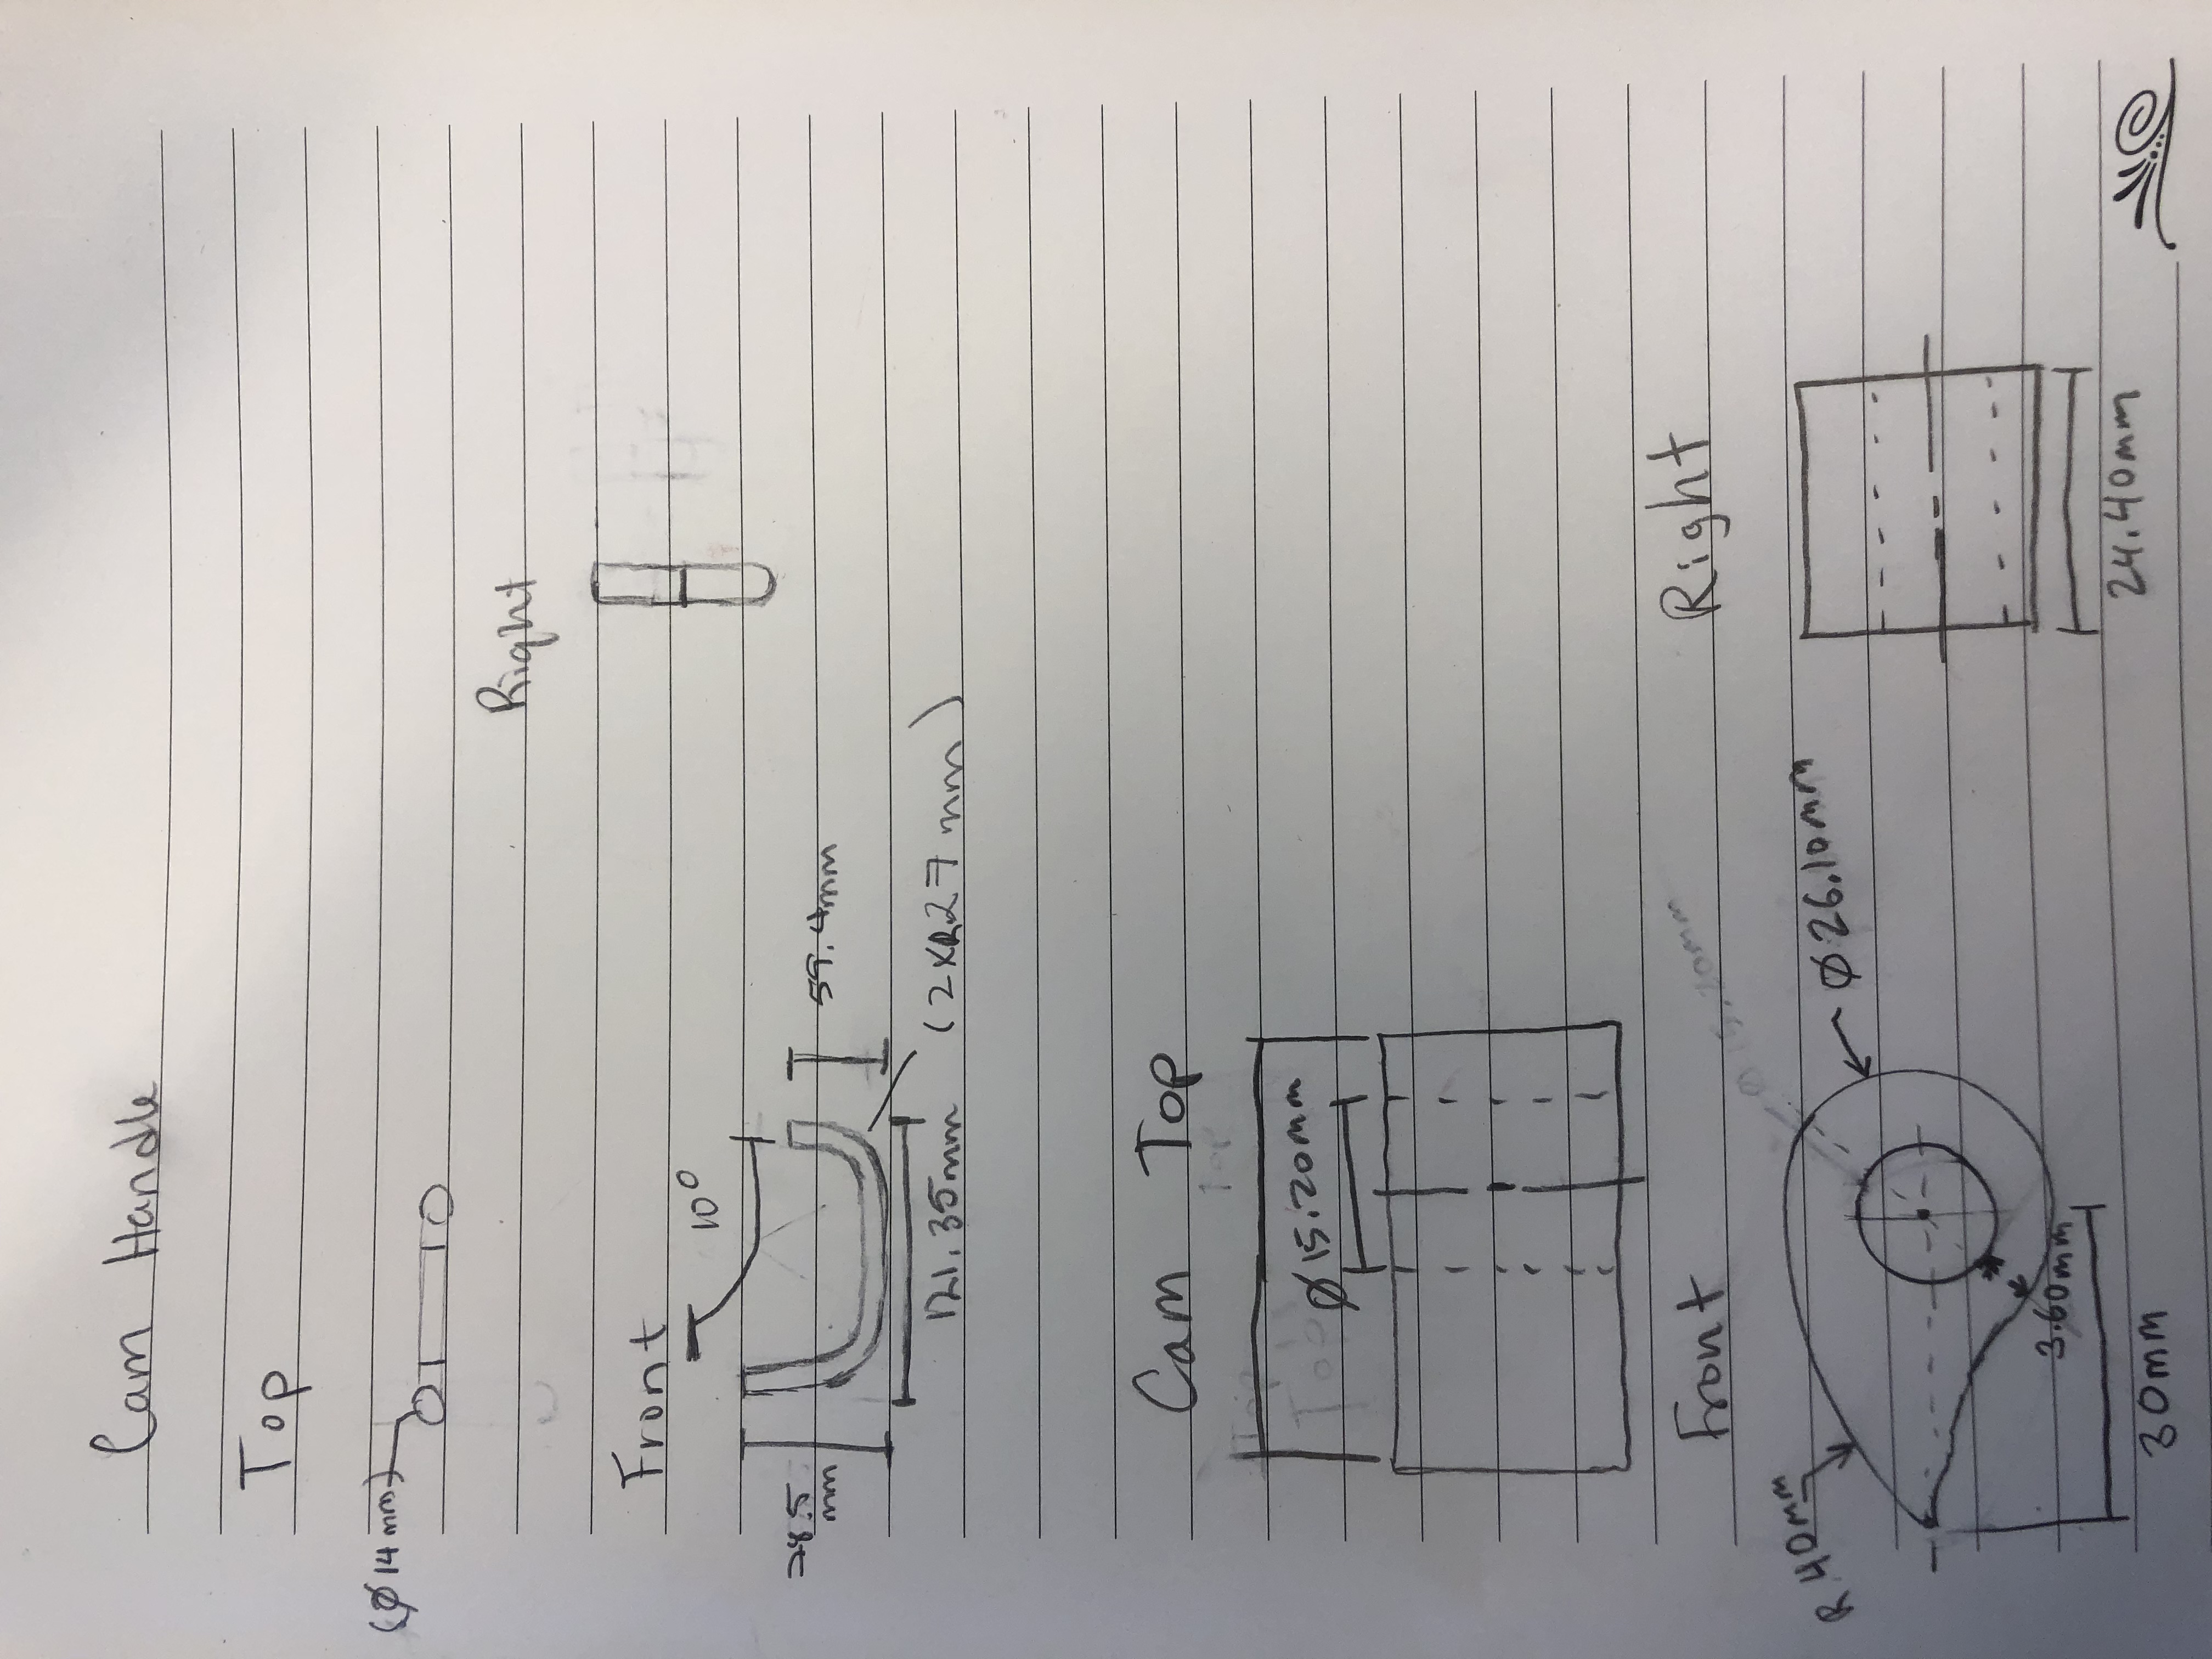 Cam Handle
Top
(Ø14mm)
Right
Front
10°
78.5
mm
59.4mm
121.35mm
(2XR27mm)
Cam Top
Top
Top
Top
Ø15.20mm
Front
Right
Ø15.20mm
R.40mm
Ø26.10mm
3.60mm
30mm
24.40mm